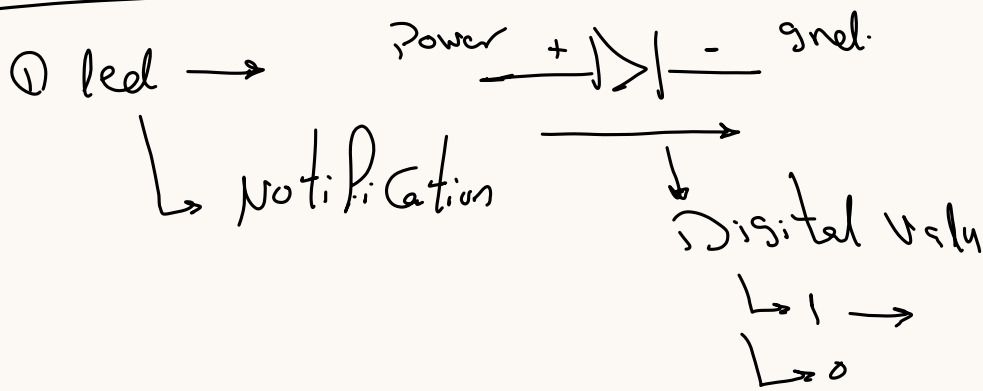 ① led → Power + - gnd.
Notification
Digital valu
1 →
0